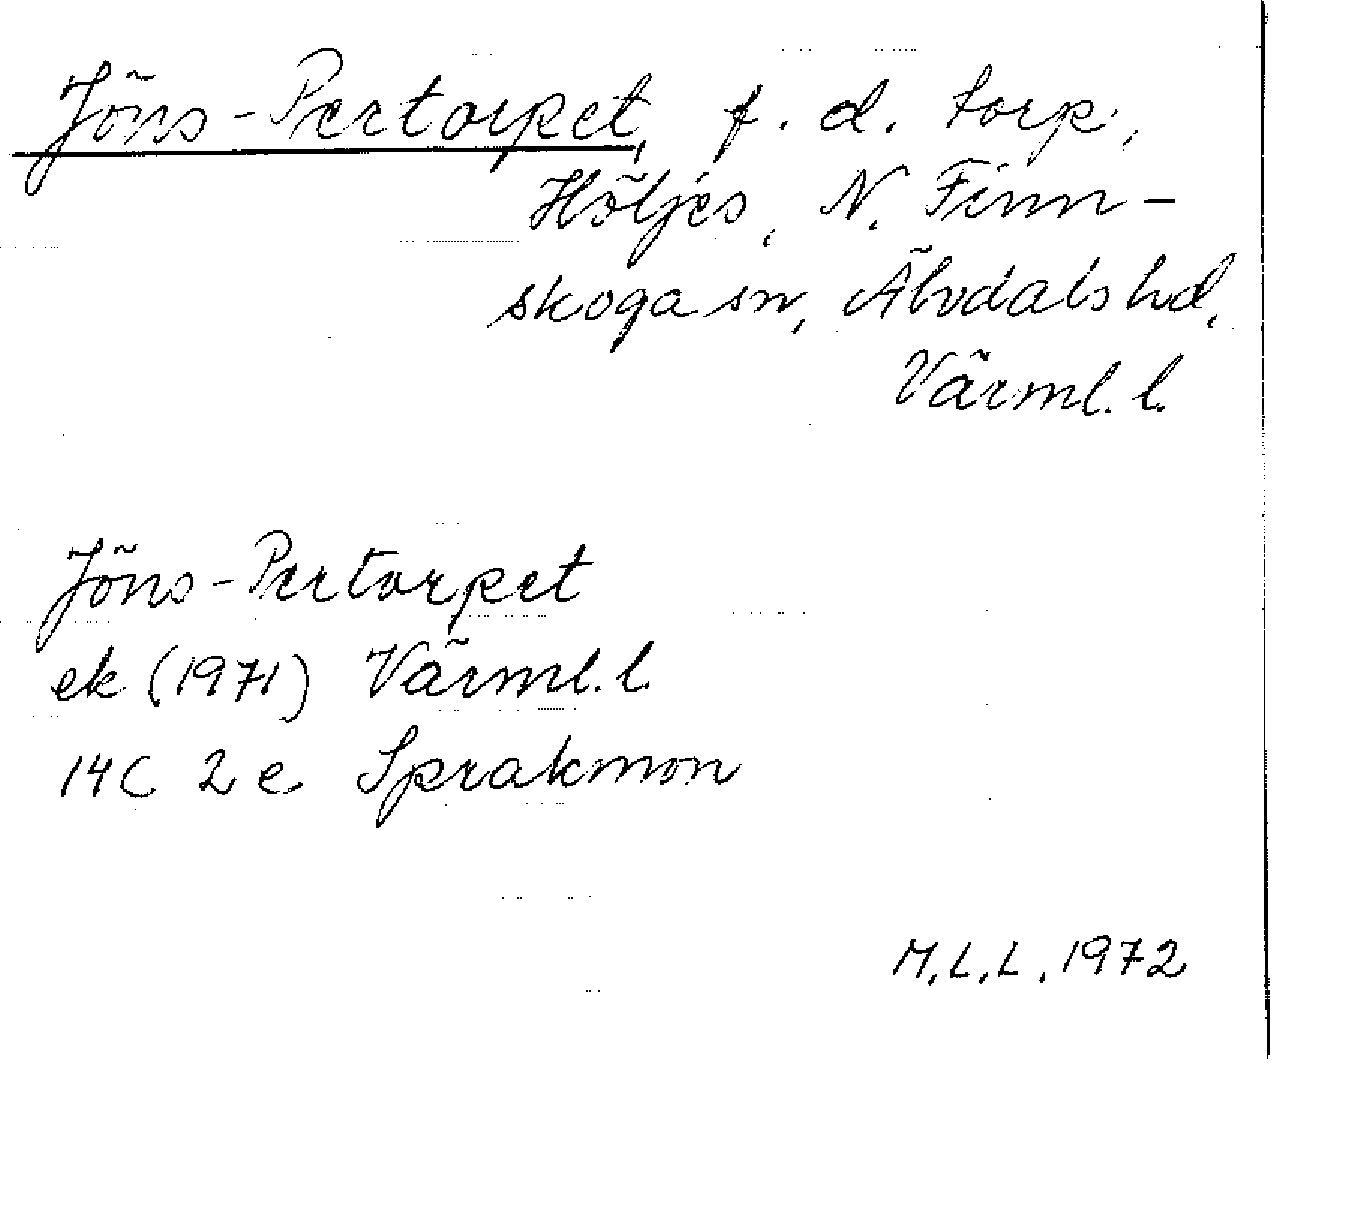 Jöns-Pertorpet, f.d. torp,
Höljes, N. Finn-
skoga sn, Älvdals hd,
Värml. l.
Jöns-Pertorpet
ek (1971) Värml. l.
14C 2e Sprakmon
M.L.L. 1972